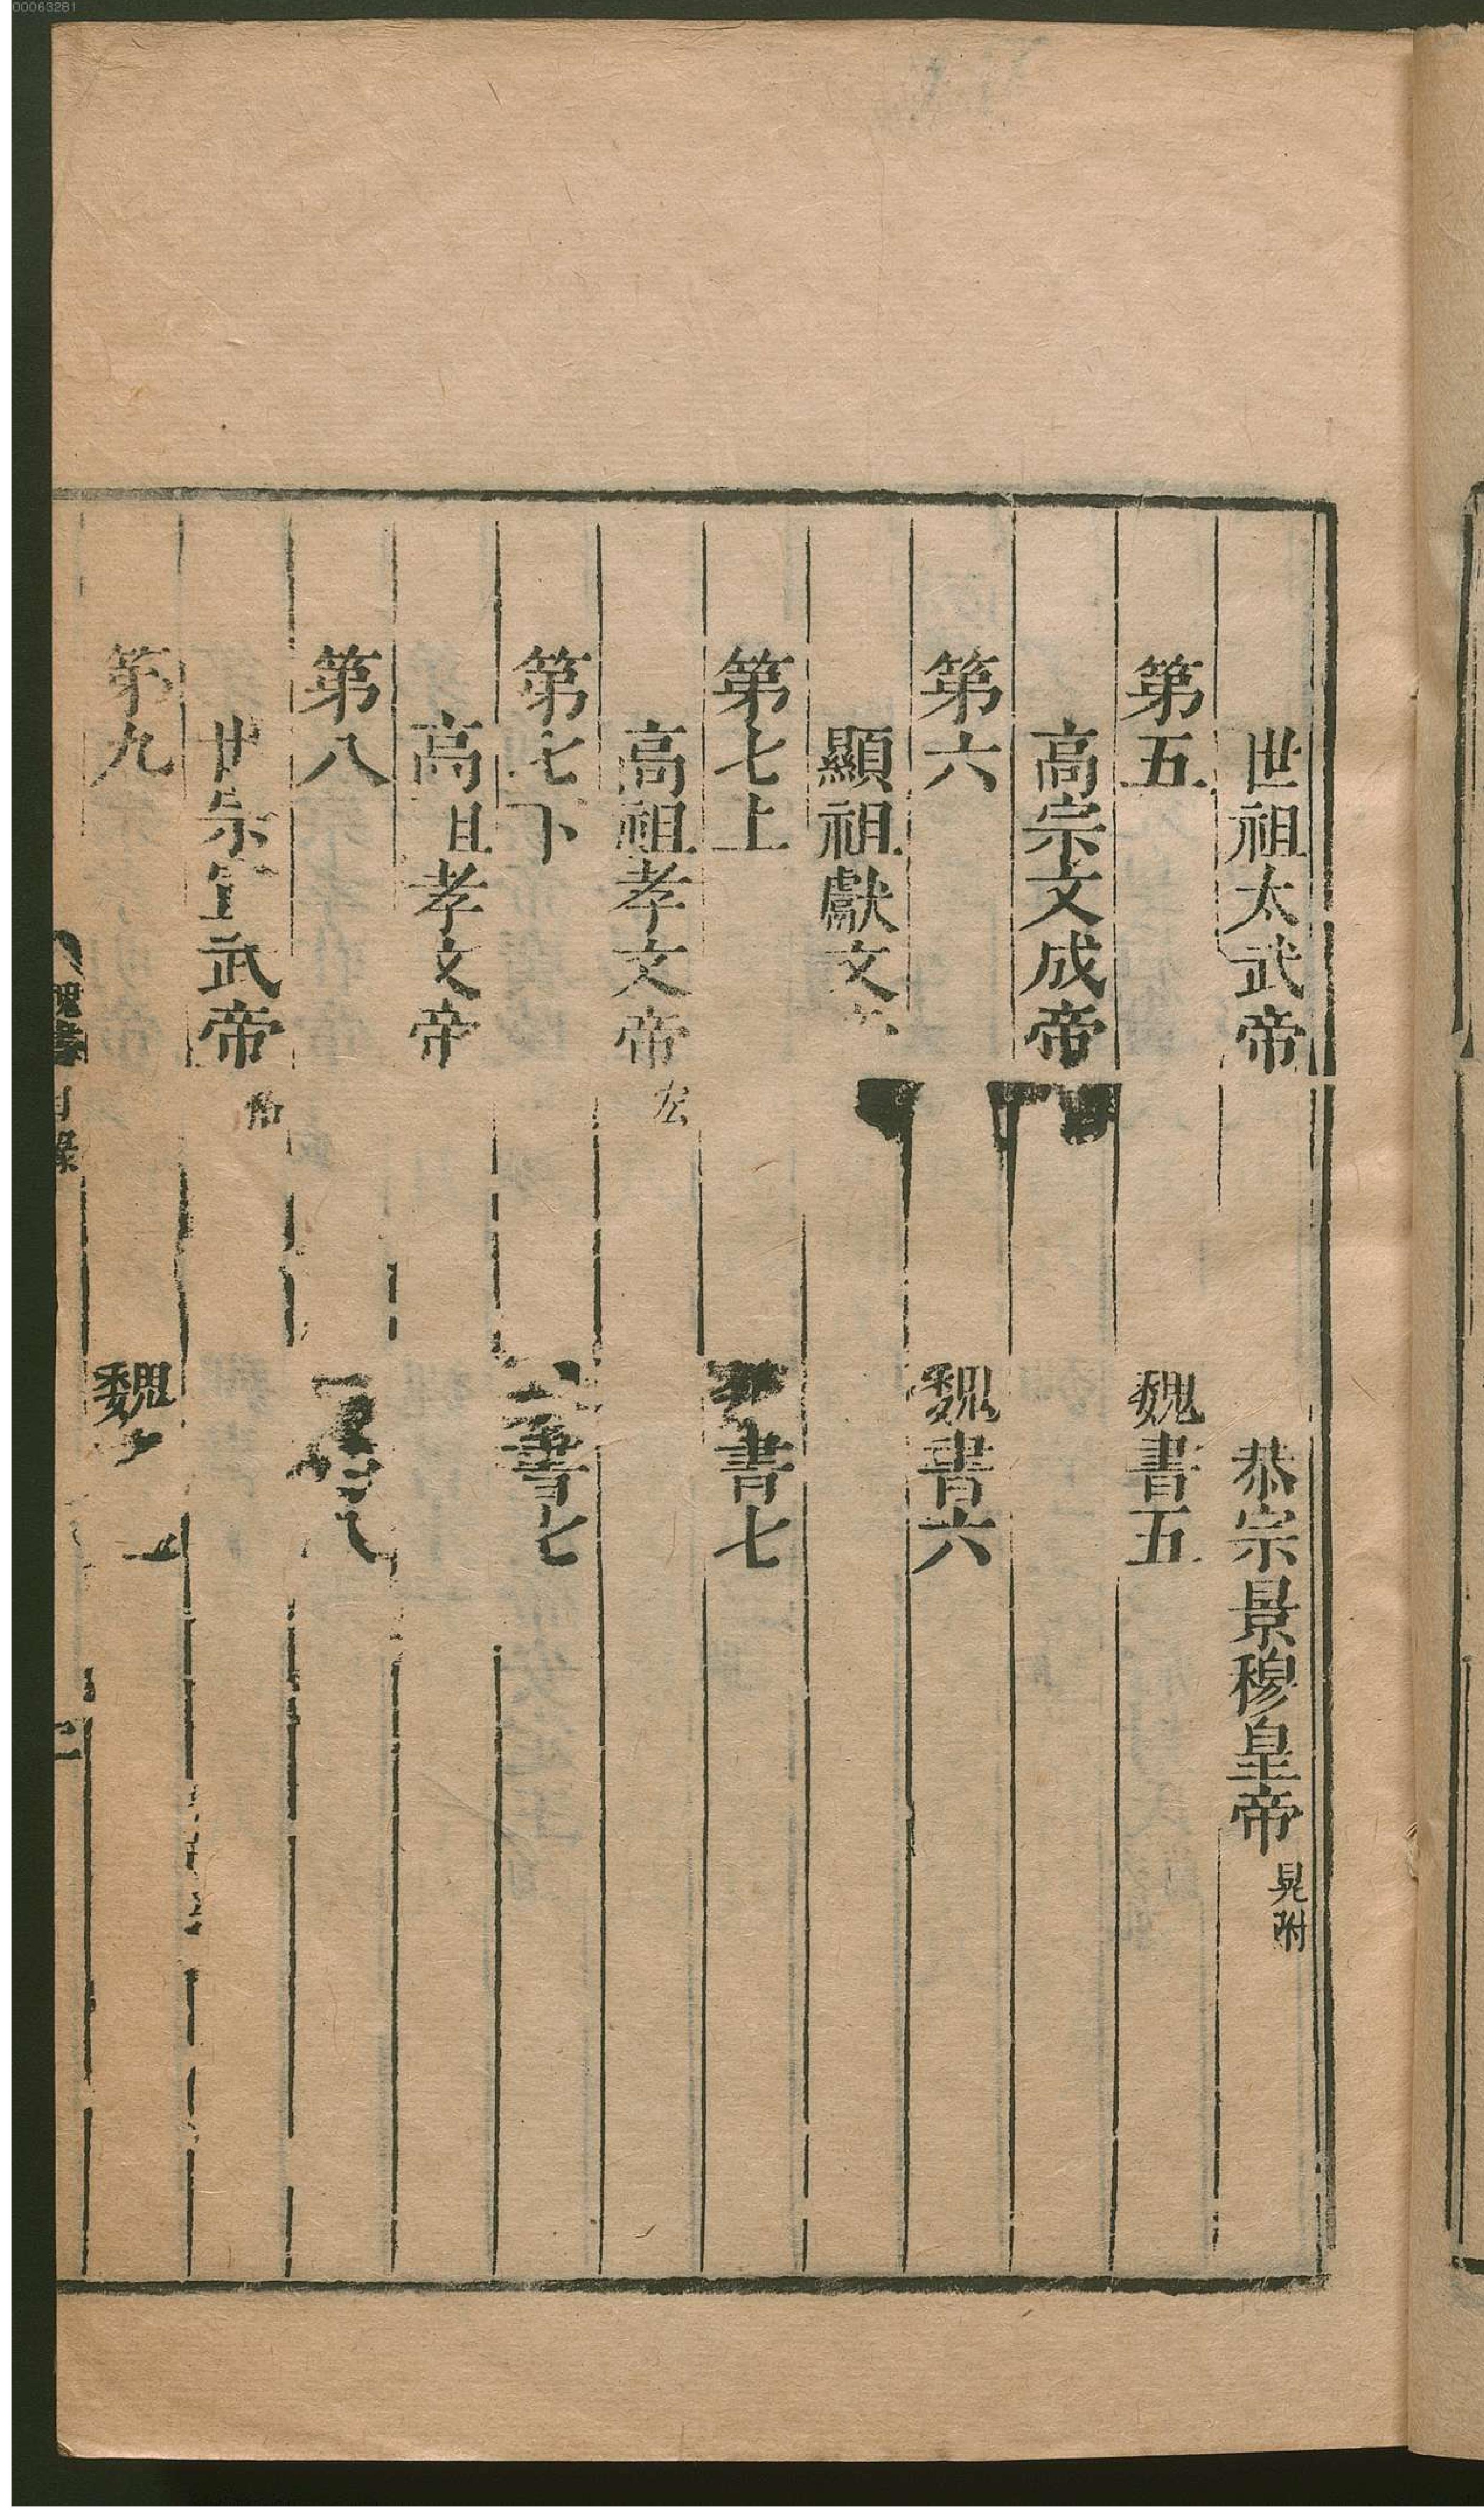 世祖太武帝 恭宗景穆皇帝晃附
第五 魏書五
高宗文成帝
第六 魏書六
顯祖獻文
第七上 書七
高祖孝文帝宏
第七下 書七
高祖孝文帝
第八 八
世宗宣武帝
第九 魏
魏書 目錄 二
00063281